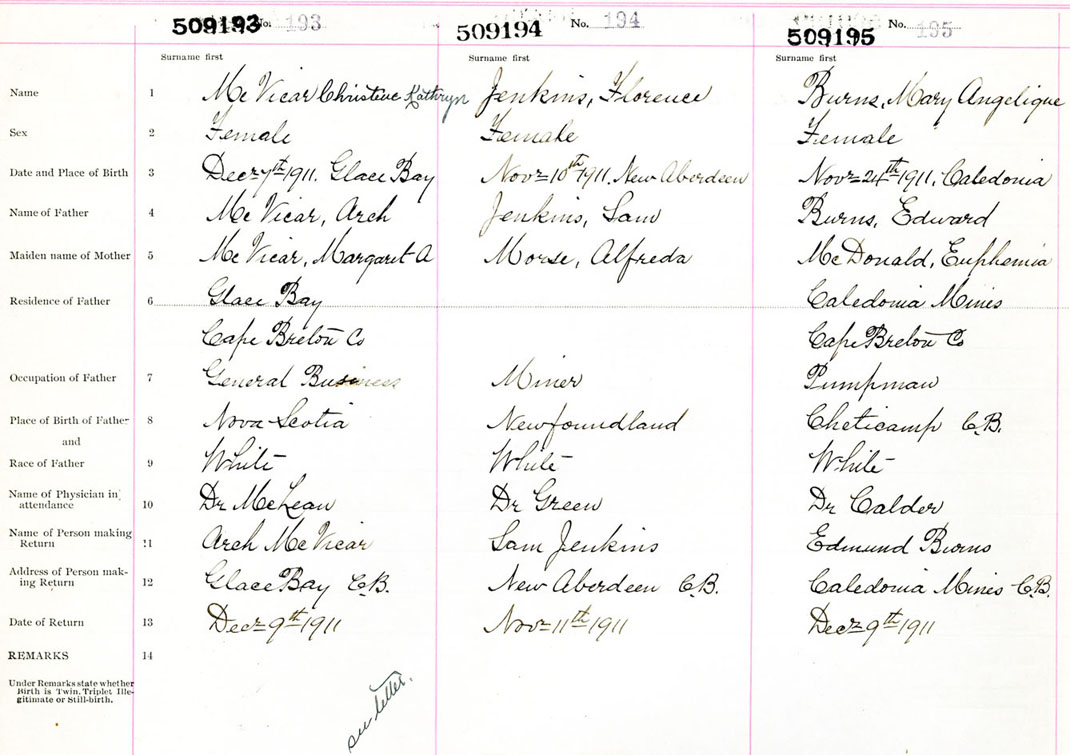 509193 No. 193 509194 No. 194 509195 No. 195
Surname first Surname first Surname first
Name 1 McVicar Christine Kathryn Jenkins, Florence Burns, Mary Angelique
Sex 2 Female Female Female
Date and Place of Birth 3 Dec 7th 1911. Glace Bay Nov 10th 1911. New Aberdeen Nov 24th 1911, Caledonia
Name of Father 4 McVicar, Arch Jenkins, Sam Burns, Edward
Maiden name of Mother 5 McVicar, Margaret A Morse, Alfreda McDonald, Euphemia
Residence of Father 6 Glace Bay Caledonia Mines
Cape Breton Co Cape Breton Co
Occupation of Father 7 General Business Miner Pumpman
Place of Birth of Father 8 Nova Scotia Newfoundland Cheticamp C.B.
and
Race of Father 9 White White White
Name of Physician in
attendance 10 Dr McLean Dr Green Dr Calder
Name of Person making
Return 11 Arch McVicar Sam Jenkins Edmund Burns
Address of Person mak-
ing Return 12 Glace Bay C.B. New Aberdeen C.B. Caledonia Mines C.B.
Date of Return 13 Dec 9th 1911 Nov 11th 1911 Dec 9th 1911
REMARKS 14
Under Remarks state whether
Birth is Twin, Triplet Ille-
gitimate or Still-birth.
see letter.